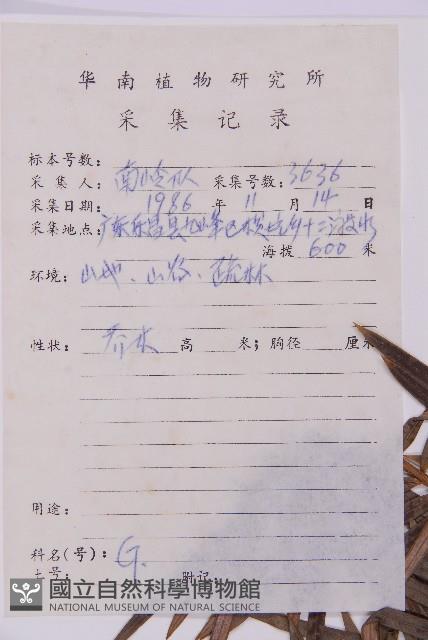 华南植物研究所
采集记录
标本号数：
采集人：南岭队 采集号数：3636
采集日期：1986年11月14日
采集地点：广东乐昌县
海拨600米
环境：山地、山谷、疏林
性状：乔木 高 米；胸径 厘米
用途：
科名(号)：G.
土名： 附记：
國立自然科學博物館
NATIONAL MUSEUM OF NATURAL SCIENCE